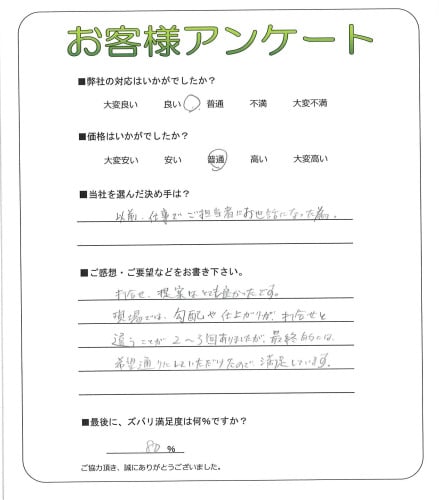 お客様アンケート
■弊社の対応はいかがでしたか?
大変良い 良い 普通 不満 大変不満
■価格はいかがでしたか?
大変安い 安い 普通 高い 大変高い
■当社を選んだ決め手は?
以前、仕事でご担当者にお世話になった為。
■ご感想・ご要望などをお書き下さい。
打合せ、提案はとても良かったです。
現場では、勾配や仕上がりが、打合せと
違うことが2〜3回ありましたが、最終的には、
希望通りにしていただけたので、満足しています。
■最後に、ズバリ満足度は何%ですか?
80 %
ご協力頂き、誠にありがとうございました。